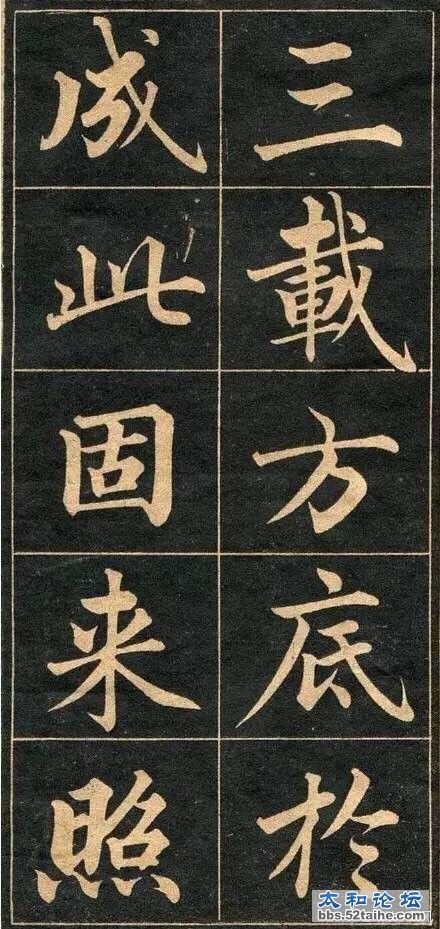 三載方底於
成此固来照
太和论坛
bbs.52taihe.com